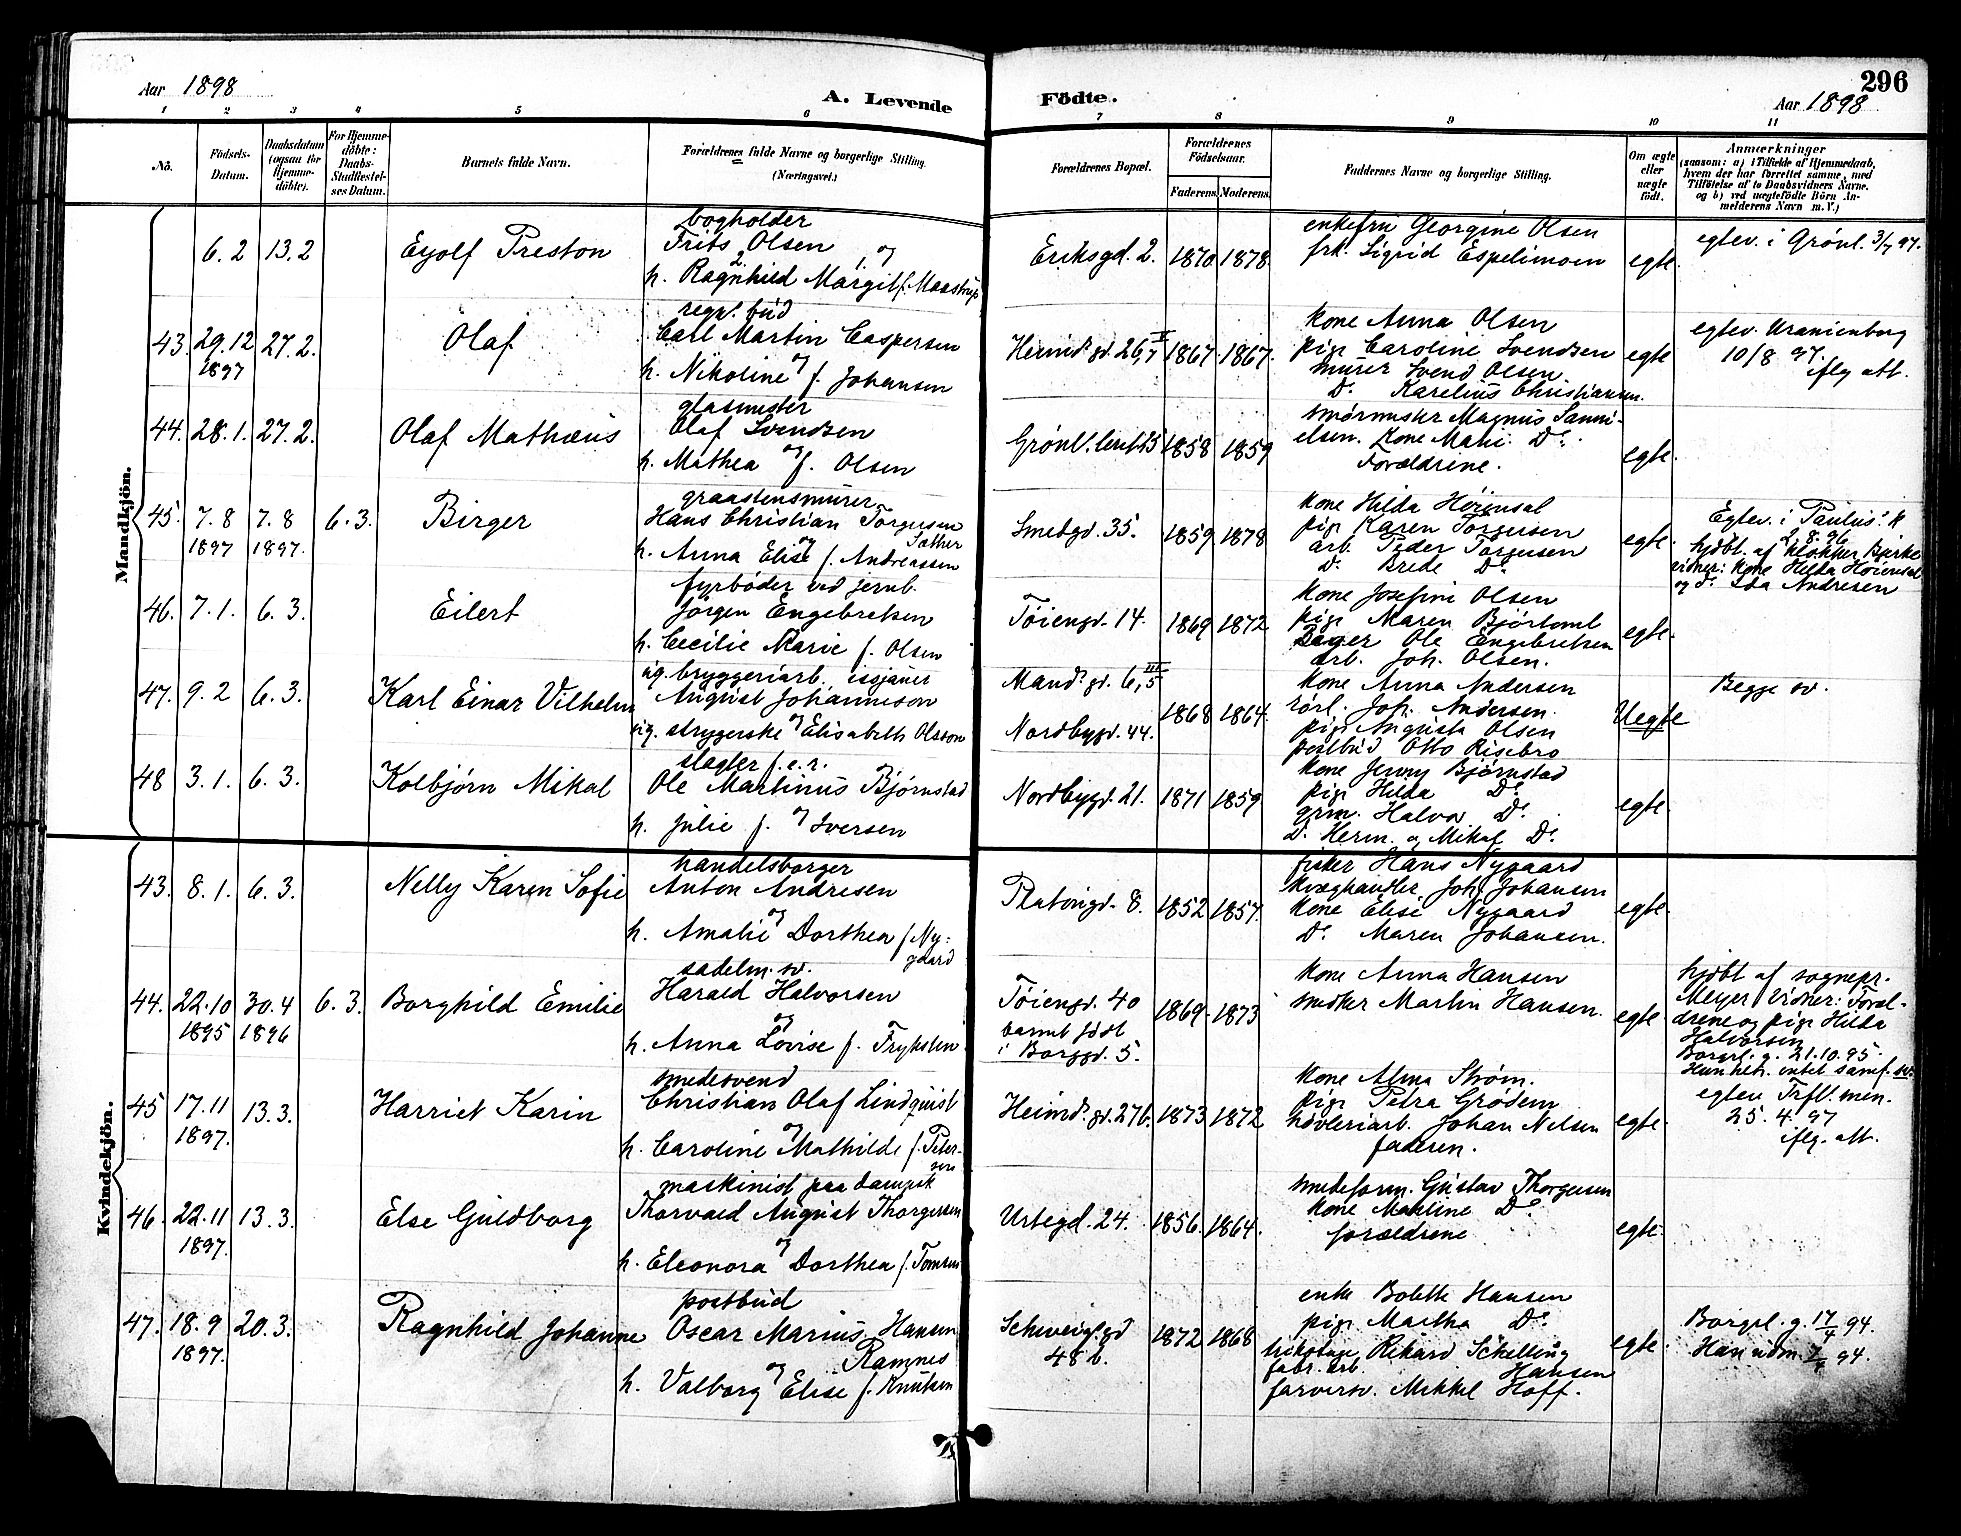 296
Aar 1898
A. Levende Födte.
Aar 1898
1 2 3 4 5 6 7 8 9 10 11
No.
Födsels-Datum.
Daabsdatum (ogsaa for Hjemme-döbte).
For Hjemme-döbte: Daabs-Stadfæstel-ses Datum.
Barnets fulde Navn.
Forældrenes fulde Navne og borgerlige Stilling. (Næringsvei.)
Forældrenes Bopæl.
Forældrenes Födselsaar.
Faderens Moderens
Faddernes Navne og borgerlige Stilling.
Om ægte eller uægte födt.
Anmærkninger
(saasom: a) i Tilfælde af Hjemmedaab, hvem der har forrettet samme, med Tilföielse af to Daabsvidners Navne, og b) ved uægtefödte Börn An-melderens Navn m. V.)
Mandkjön.
6.2 13.2 Eyolf Preston
bogholder
Frits Olsen og
h. Ragnhild Margit f. Maastrup
Eriksgd. 2. 1870 1878.
enkefru Georgine Olsen
frk. Sigrid Espelimoen
egte.
egtev. i Grönl. 3/7 97.
43. 29.12 1897 27.2. Olaf
regn. bud
Carl Martin Caspersen
og
h. Nikoline f. Johansen
Heimd. gd. 26, 1867 1867.
kone Anna Olsen
pige Caroline Svendsen
murer Svend Olsen
Do Karelius Christiansen.
egte
egtev. Uranienborg
10/8 97.
iflg att.
44. 28.1. 27.2. Olaf Mathæus
glasmester
Olaf Svendsen
og
h. Mathea f. Olsen
Grönl. 1858 1859
Magnus Samu-
elsen. Kone Do.
Forældrene.
egte.
45. 7.8 1897 7.8 1897. 6.3. Birger
graastensmurer
Hans Christian Torgersen
Sæther
og
h. Anna Elise f. Andreassen
Smedgd. 35. 1859 1878
kone Hilda Höiensal
pige Karen Torgersen
arb. Peder Torgersen
Do Brede Do
egte.
Egtev. i Paulus' K
2.8.96
hjdbt. af klokker Bjerke
vidner: kone Hilda Höiensal
og Do Ida Andresen
46. 7.1. 6.3. Eilert
fyrböder ved jernb.
Jörgen Engebretsen
h. Cecilie Marie f. Olsen
Töiengd. 14. 1869 1872
kone Josefine Olsen
pige Maren
Ole Engebretsen
arb. Joh. Olsen.
egte.
47. 9.2 6.3. Karl Einar Vilhelm
ug. bryggeriarb. issjauer
August Johannison
og
ug. strygerske Elisabeth Olsson
Mand. gd. 6,
Nordbygd. 44. 1868 1864.
kone Anna Andersen
rörl. Joh. Andersen.
pige Augusta Olsen
postbud Otto Risebro
Uegte
Begge sv.
48 3.1. 6.3. Kolbjørn Mikal
slagter f.e.r.
Ole Martinus Bjørnstad
og
h. Julie f. Iversen
Nordbygd. 21. 1871 1859
kone Jenny Bjørnstad
pige Hilda Do
grm. Halvor Do
D. Herm. og Mikal Do
egte.
Kvindekjön.
43. 8.1. 6.3. Nelly Karen Sofie
handelsborger
Anton Andresen
og
h. Amalie Dorthea f. Ny-
gaard
Platousgd. 8. 1852 1857.
fisker Hans Nygaard
kvæghandler Joh. Johansen
kone Elise Nygaard
Do Maren Johansen.
egte.
44. 22.10 1895 30.4 1896 6.3. Borghild Emilie
sadelm. sv.
Harald Halvorsen
og
h. Anna Lovise f. Tryksten
Töiengd. 40
barnet født
i Borggd. 5.
1869 1873
kone Anna Hansen
Martin Hansen.
egte
hjdbt af sognepr.
Meyer. Vidner: Foræl-
drene og pige Hilda
Halvorsen
Borgrl. g. 21.10.95.
Hun hetr. intet samf.
45 17.11 1897. 13.3. Harriet Karin
smedesvend
Christian Olaf Lindquist
og
h. Caroline Mathilde f. Peter-
sen
Heimd. gd. 27 b. 1873 1872
kone Alma Strøm.
pige Petra Grödem
høvleriarb. Johan Nelsen
faderen.
egte.
egtev. Trfl. men.
25.4.97
iflg. att.
46. 22.11 1897. 13.3. Else Guldborg
maskinist paa dampsk
Thorvald August Thorgersen
og
h. Eleonora Dorthea f. Tomsen
Urtegd. 24. 1856 1864.
smedeform. Gustav Thorgersen
kone Mathine Do
forældrene
egte.
47. 18.9 1897. 20.3. Ragnhild Johanne
postbud
Oscar Marius Hansen
Ramnes
og
h. Valborg Elise f. Knutsen
Schweig. gd
48 b.
1872 1868
enke Bolette Hansen
pige Martha Do
Rikard Schelling
fabr. arb Hansen
farversv. Mikkel Hoff.
egte.
Borgrl. g. 17/4 94.
Han udm. 94.